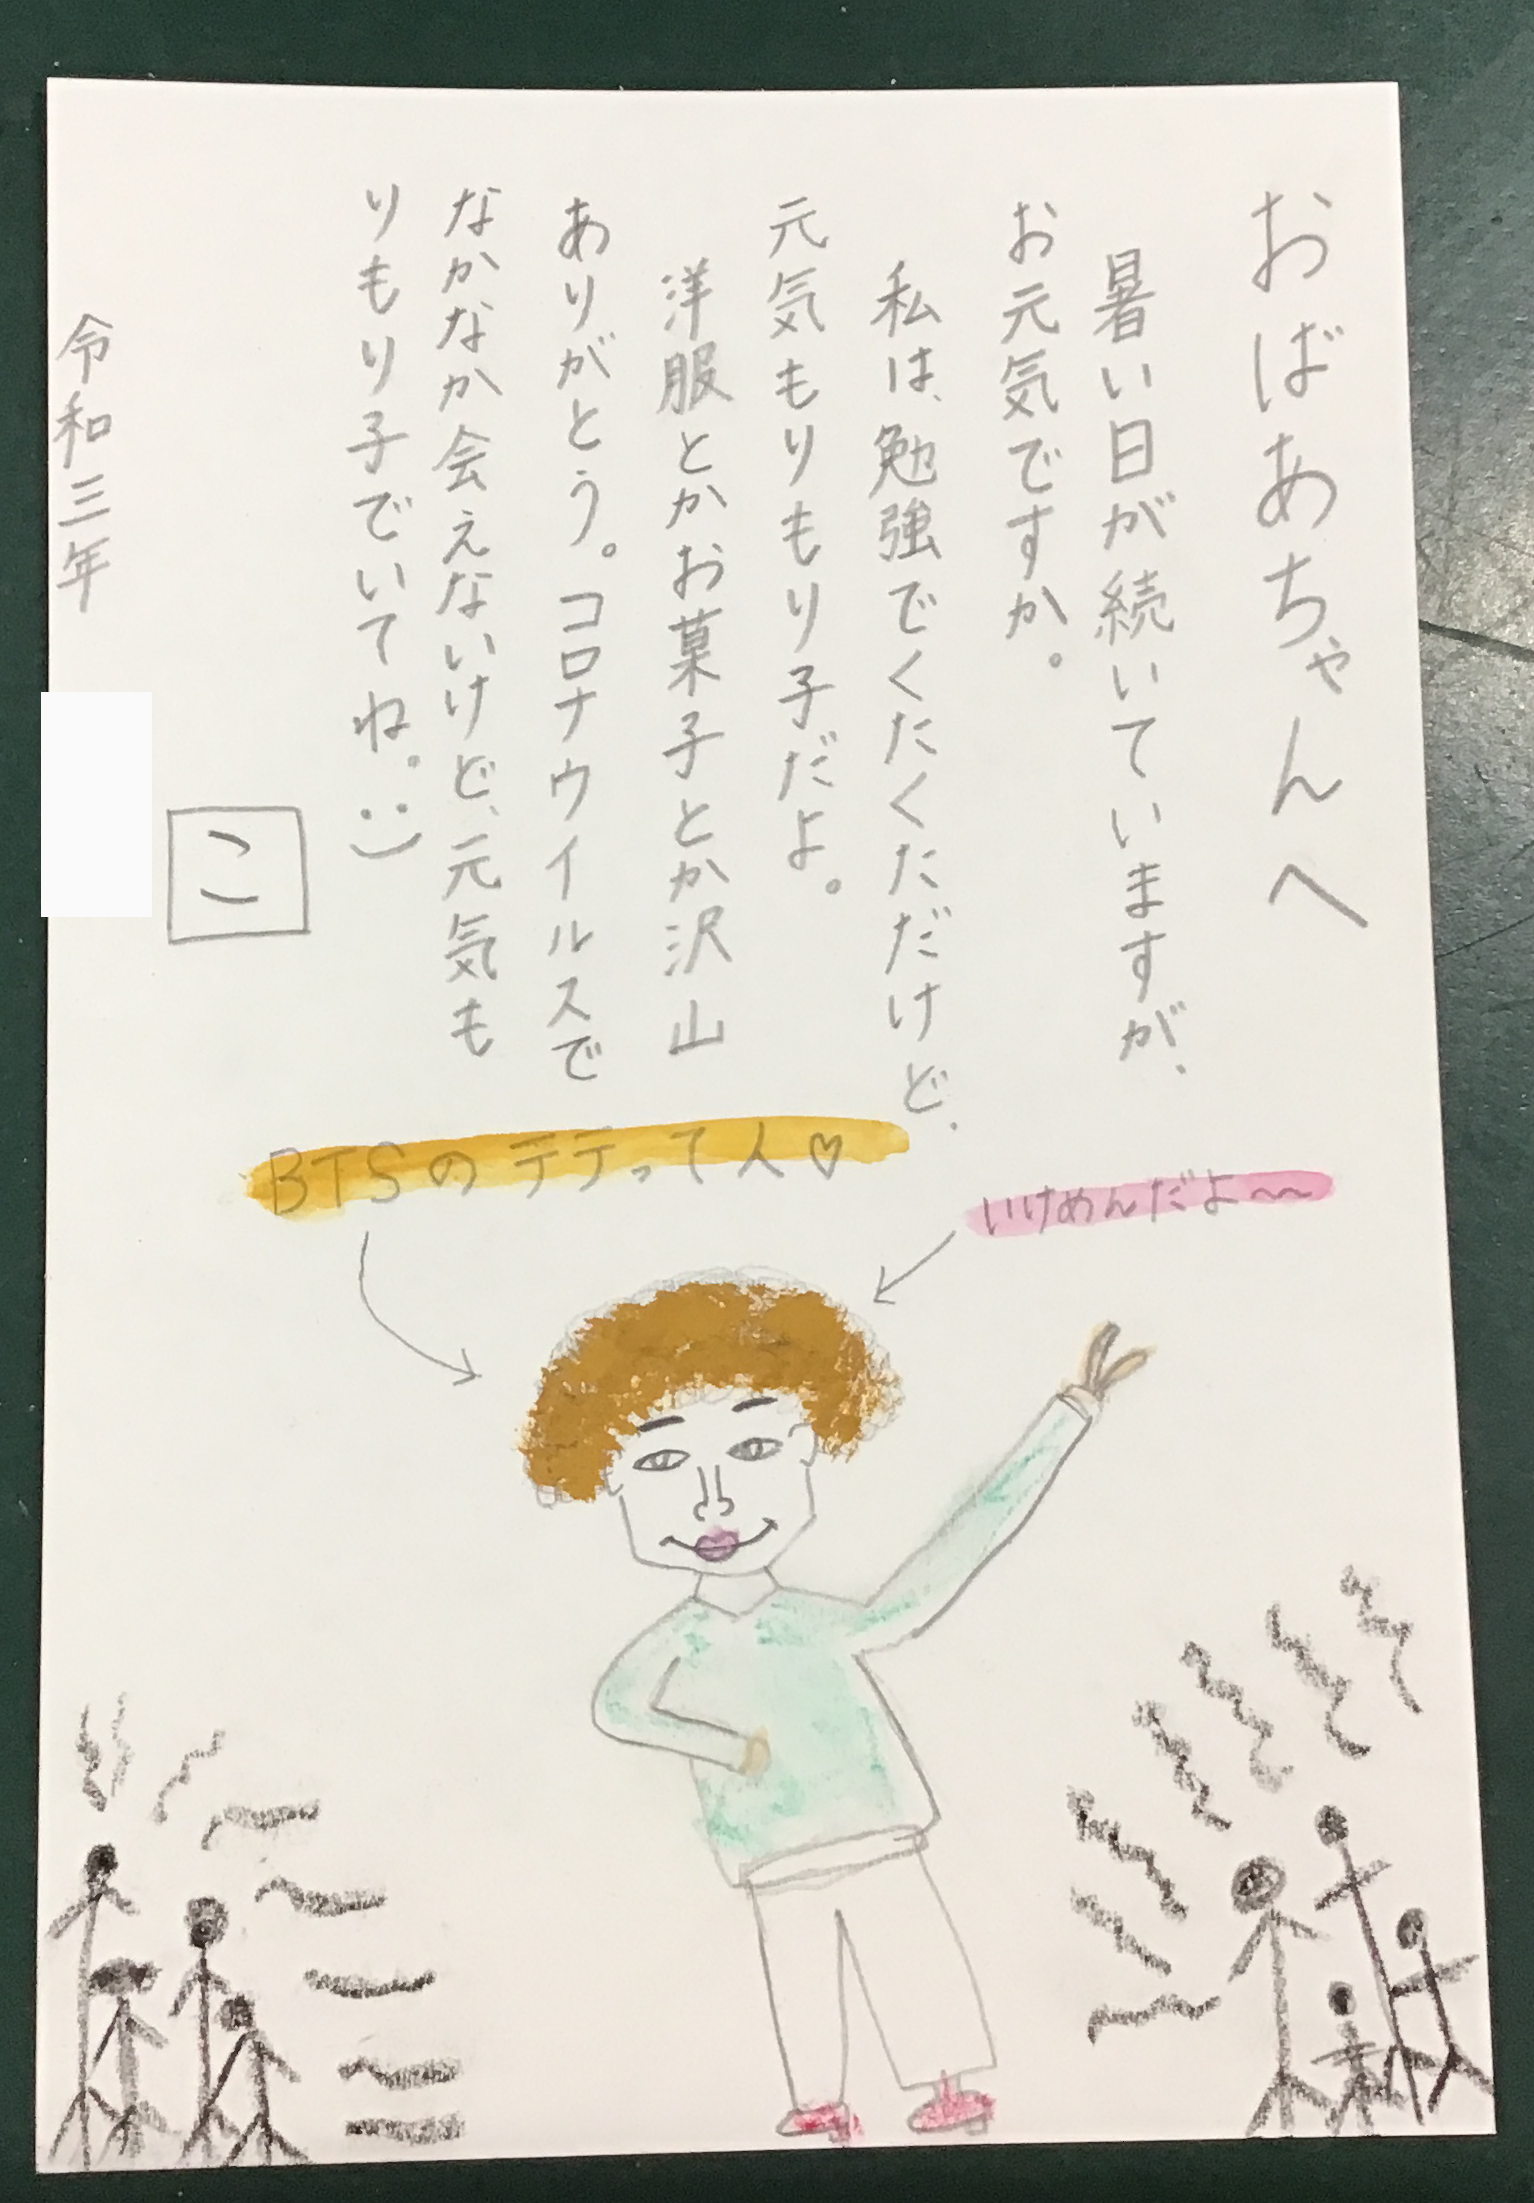 おばあちゃんへ
暑い日が続いていますが、
お元気ですか。
私は、勉強でくたくただけど、
元気もりもりもり子だよ。
洋服とかお菓子とか沢山
ありがとう。コロナウイルスで
なかなか会えないけど、元気も
りもり子でいてね。:)
令和三年
こ
BTSのテテって人♡
いけめんだよ〜〜